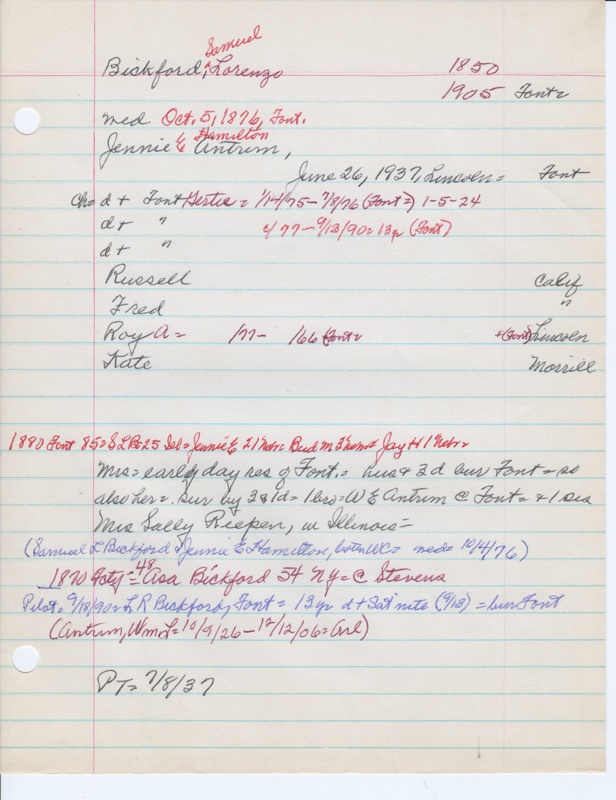 Samuel
Bickford, ^ Lorenzo 1850
1905 Font=
med Oct. 5, 1876, Font.
Hamilton
Jennie E Antrim,
June 26, 1937, Lincoln= Font
Ch= d+ Font Gertie = 1/14/75 - 7/8/76 (Font=) 1-5-24
d+ " c/77 - 9/13/90 = 13yr (Font)
d+ "
Russell Calif
Fred "
Roy A= /77- /66 Font= +(Font) Lincoln
Kate Morrill
1880 Font 85= S L B= 25 Jennie E 21 Nebr Bud M Thomas Jay H 1 Nebr=
Mrs= early day res of Font.= hus & 3 d bur Font= so
also her= sur by 3 s 1d= 1 bro= W E Antrim @ Font= & 1 sis
Mrs Sally Riepen, in Illinois=
(Samuel L Bickford & Jennie E Hamilton, both WC= med= 10/4/76)
48
1870 = Asa Bickford 54 NY= @ Stevens
Pilot= 9/18/90= L R Bickford, Font= 13 yr d+ Sat nite (9/13) = bur Font
(Antrim, Wm L= 10/9/26 - 12/12/06= Arl)
PT= 7/8/37